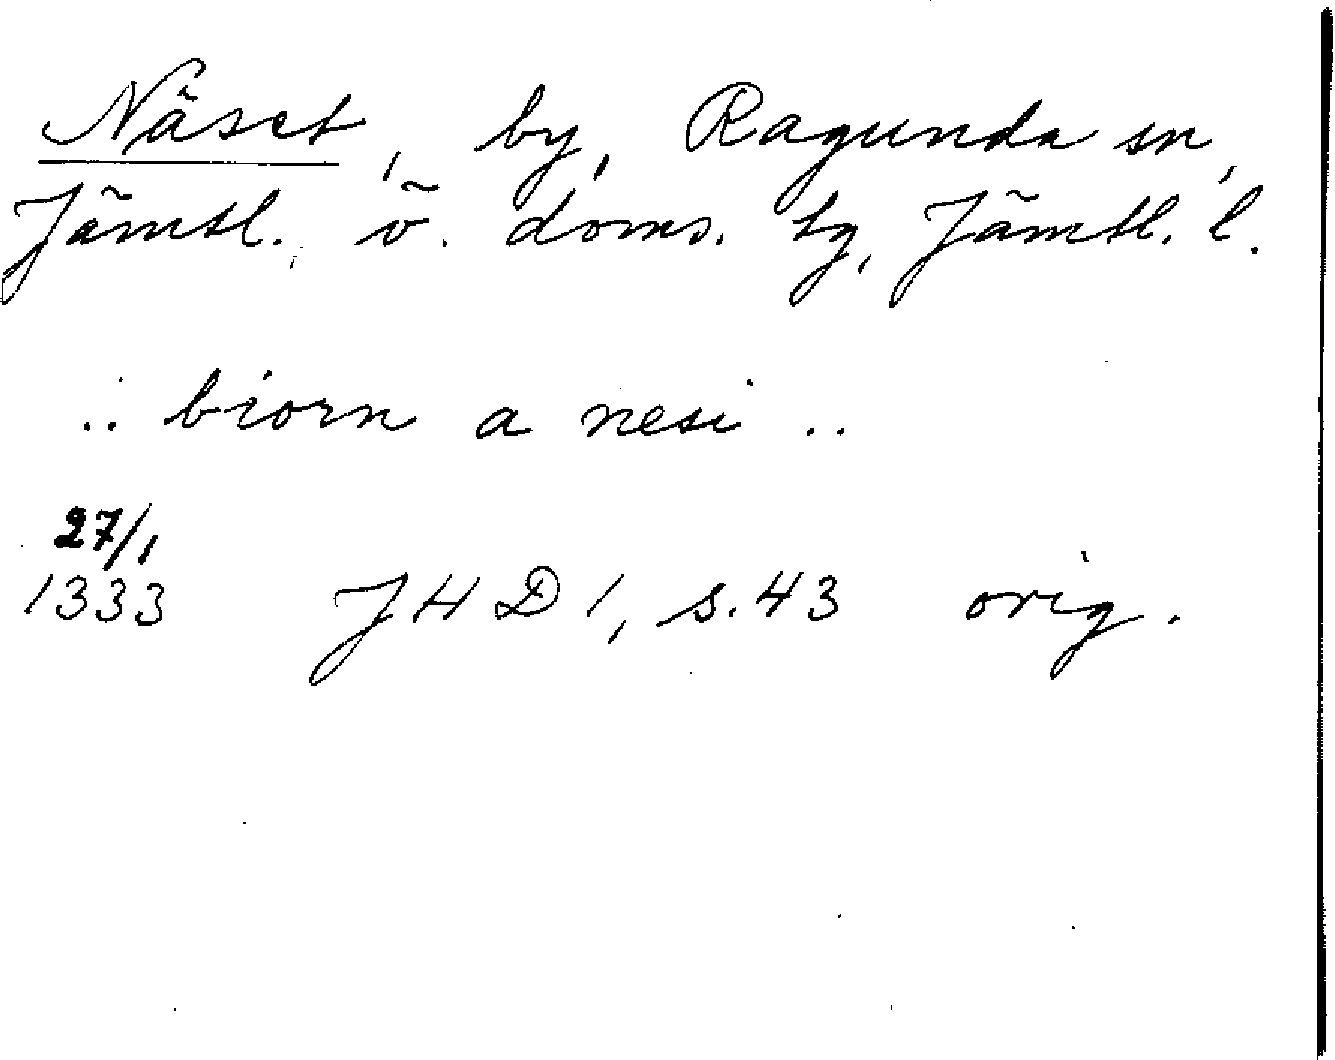 Näset, by, Ragunda sn,
Jämtl. ö. doms. tg, Jämtl. l.
.. biorn a nesi ..
27/1
1333 JHD 1, s. 43 orig.